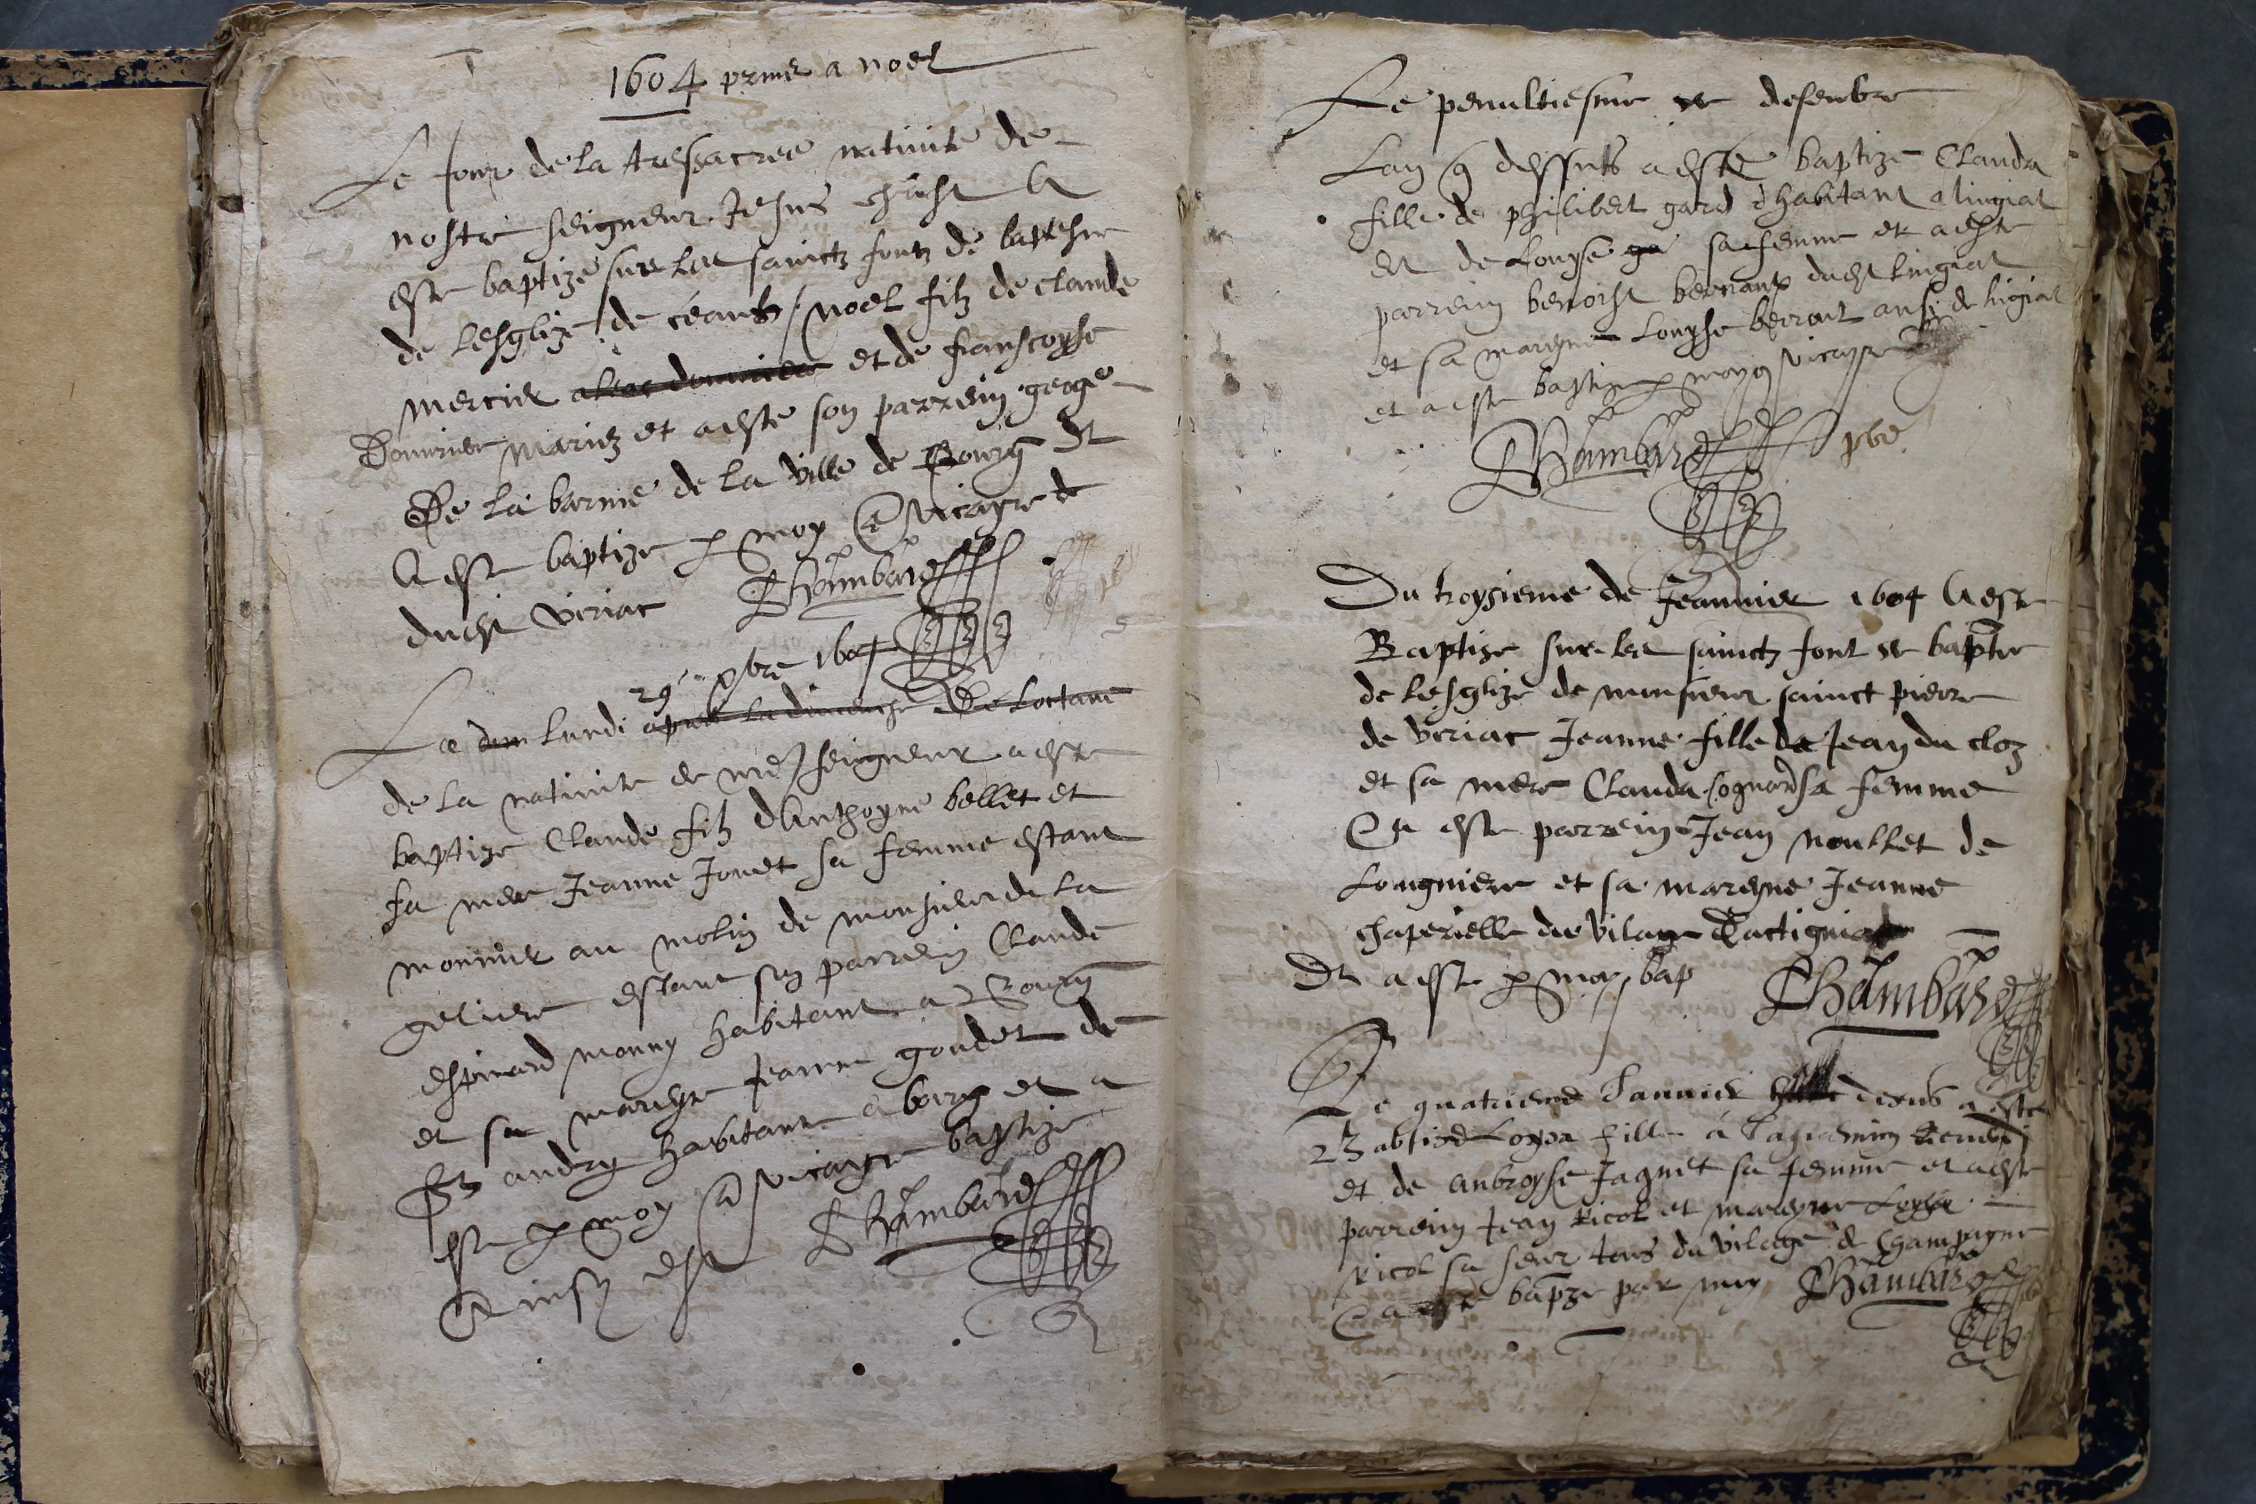 1604 prins a noel
Le Jour de la tressacree nativite de
nostre seigneur Jesus christ A
este baptize sur les sainctz fontz de baptesme
de lesglize de ceants noel filz de claude
mercier et de franscoyse
Donnier mariez et a este son parrein george
De la barme de la ville de Bourg Et
A este baptize p moy vicayre
dudit viriac Chambard
29 xbre 1604
Le lundi apres la dimenche De Loctave
de la nativite de nre seigneur a este
baptize Claude filz dAnthoyne bellet et
sa mere Jeanne Jouet sa femme estant
monnier au molin de monsieur de la
geliere estant son parrein Claude
espinard monny habitant a Bourg
et sa mareyne Jeanne goudet de
andry habitant a bourg et a
este p moy vicayre baptize
Ainsy est Chambard
Le penultiesme de desenbre
Lan q dessus a este baptize Clauda
fille de philibert gard habitant a lingiat
et de Louyse sa femme et a este
parrein benoist bernant dudit lingiat
et sa mareyne Louyse berrout ausi de lingiat
et a este baptize p moy vicayre
Chambard pbr
Du troysieme de Jeanvier 1604 A este
Baptize sur les sainctz font de baptme
de lesglize de monsieur sainct pierre
de viriac Jeanne fille de Jean du cloz
et sa mere Clauda sa femme
Et a este parrein Jean noullet de
Longniere et sa mareyne Jeanne
chaperelle du vilage
Et a este p moy bap Chambard
Le quatrieme Janvier desus a este
Babtise Loysa fille a
et de anbroyse Jaquet sa femme et a este
parrein Jean Ricol et mareyne Loysa
Ricol sa seur tous du vilage de Champagne
Et a este bapze par moy Chambard